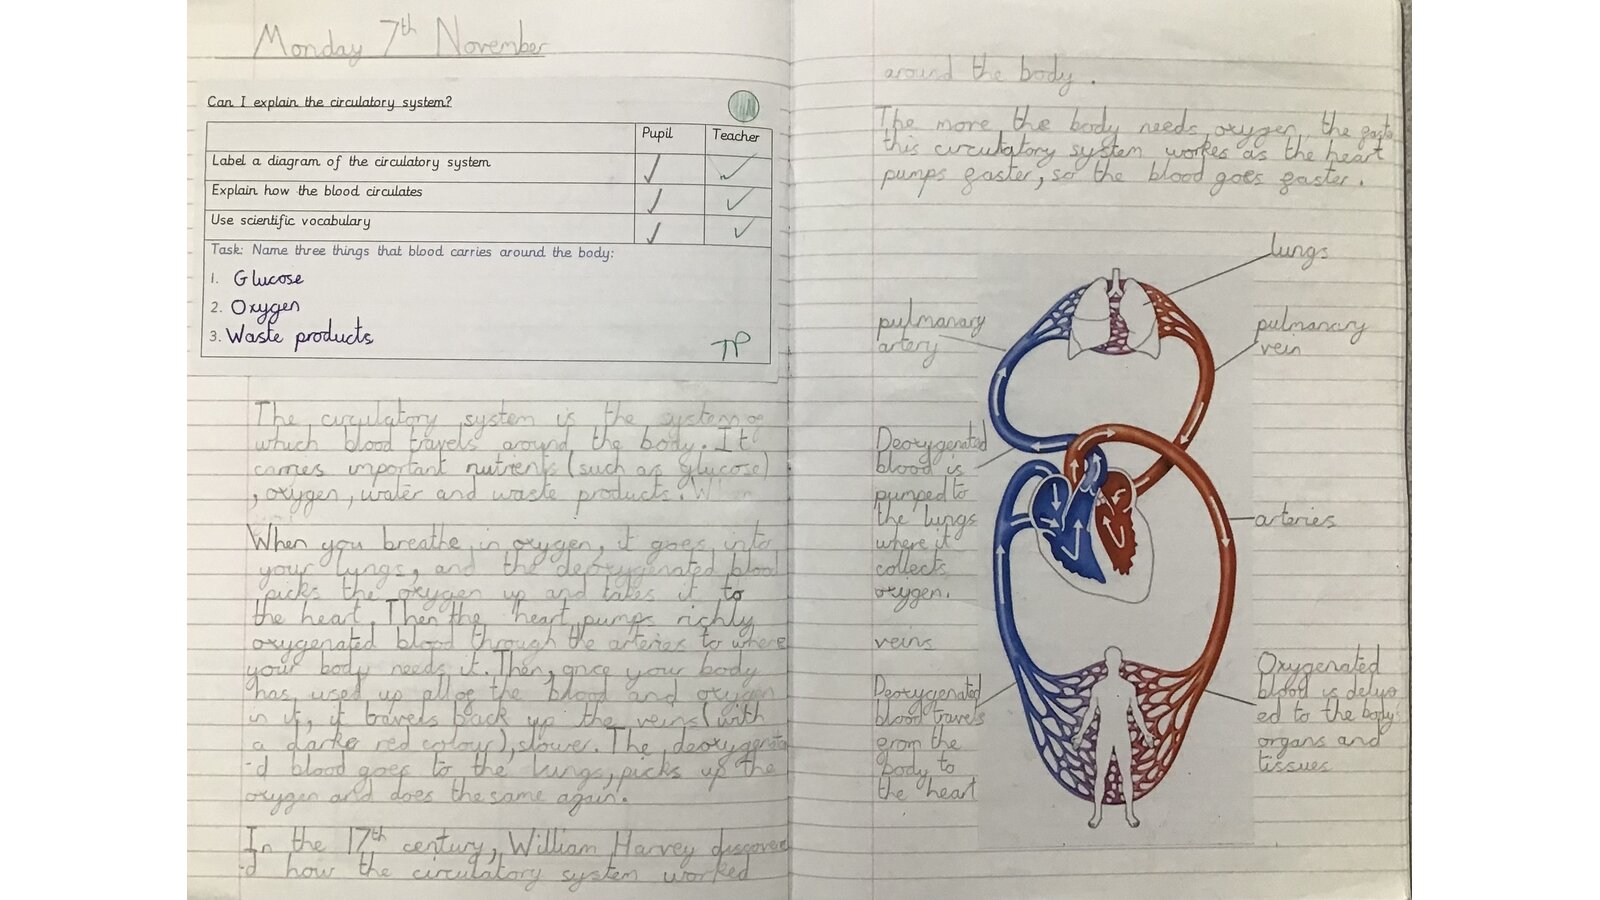 Monday 7th November
Can I explain the circulatory system?
Pupil
Teacher
Label a diagram of the circulatory system
Explain how the blood circulates
Use scientific vocabulary
Task: Name three things that blood carries around the body:
1. Glucose
2. Oxygen
3. Waste products
TP
The circulatory system is the system of
which blood travels around the body. It
carries important nutrients (such as glucose)
, oxygen, water and waste products.
When you breathe in oxygen, it goes into
your lungs, and the deoxygenated blood
picks the oxygen up and takes it to
the heart. Then the heart pumps richly
oxygenated blood through the arteries to where
your body needs it. Then, once your body
has used up all of the blood and oxygen
in it, it travels back up the veins (with
a darker red colour), slower. The deoxygenate
-d blood goes to the lungs, picks up the
oxygen and does the same again.
In the 17th century, William Harvey discovere
-d how the circulatory system worked
around the body.
The more the body needs oxygen, the
this circulatory system workes as the heart
pumps faster, so the blood goes faster.
lungs
pulmanary
artery
pulmanary
vein
Deoxygenated
blood is
pumped to
the lungs
where it
collects
oxygen.
arteries
veins
Deoxygenated
blood travels
from the
body to
the heart
Oxygenated
blood is
ed to the body's
organs and
tissues